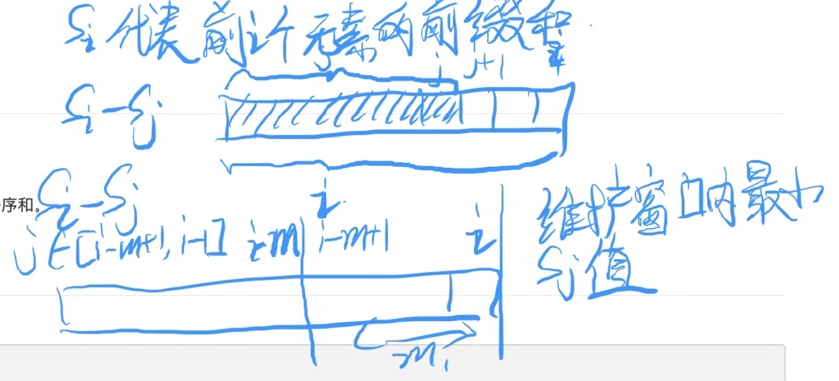 Si 代表前i个元素的前缀和
j j+1 i
Si-Sj
序和。
Si-Sj
j∈[i-m+1, i-1] i-m i-m+1 i
维护窗口内最小
Sj值
m